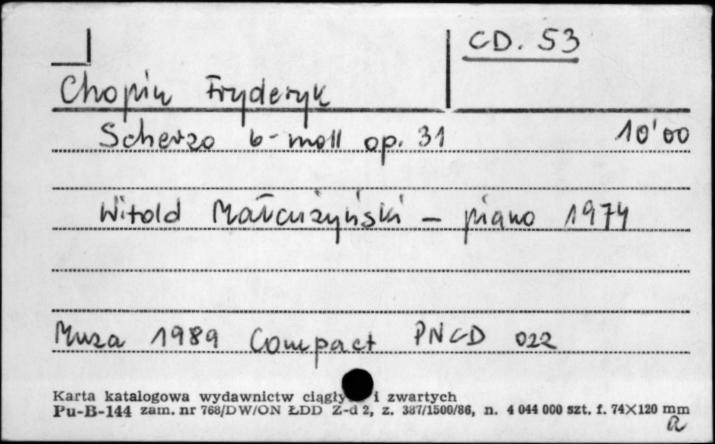 CD. 53
Chopin Fryderyk
Scherzo b-moll op. 31 10'00
Witold Małcużyński - piano 1974
Muza 1989 Compact PNCD 022
Karta katalogowa wydawnictw ciągły i zwartych
Pu-B-144 zam. nr 768/DW/ON ŁDD Z-d 2, z. 387/1500/86, n. 4 044 000 szt. f. 74×120 mm
a